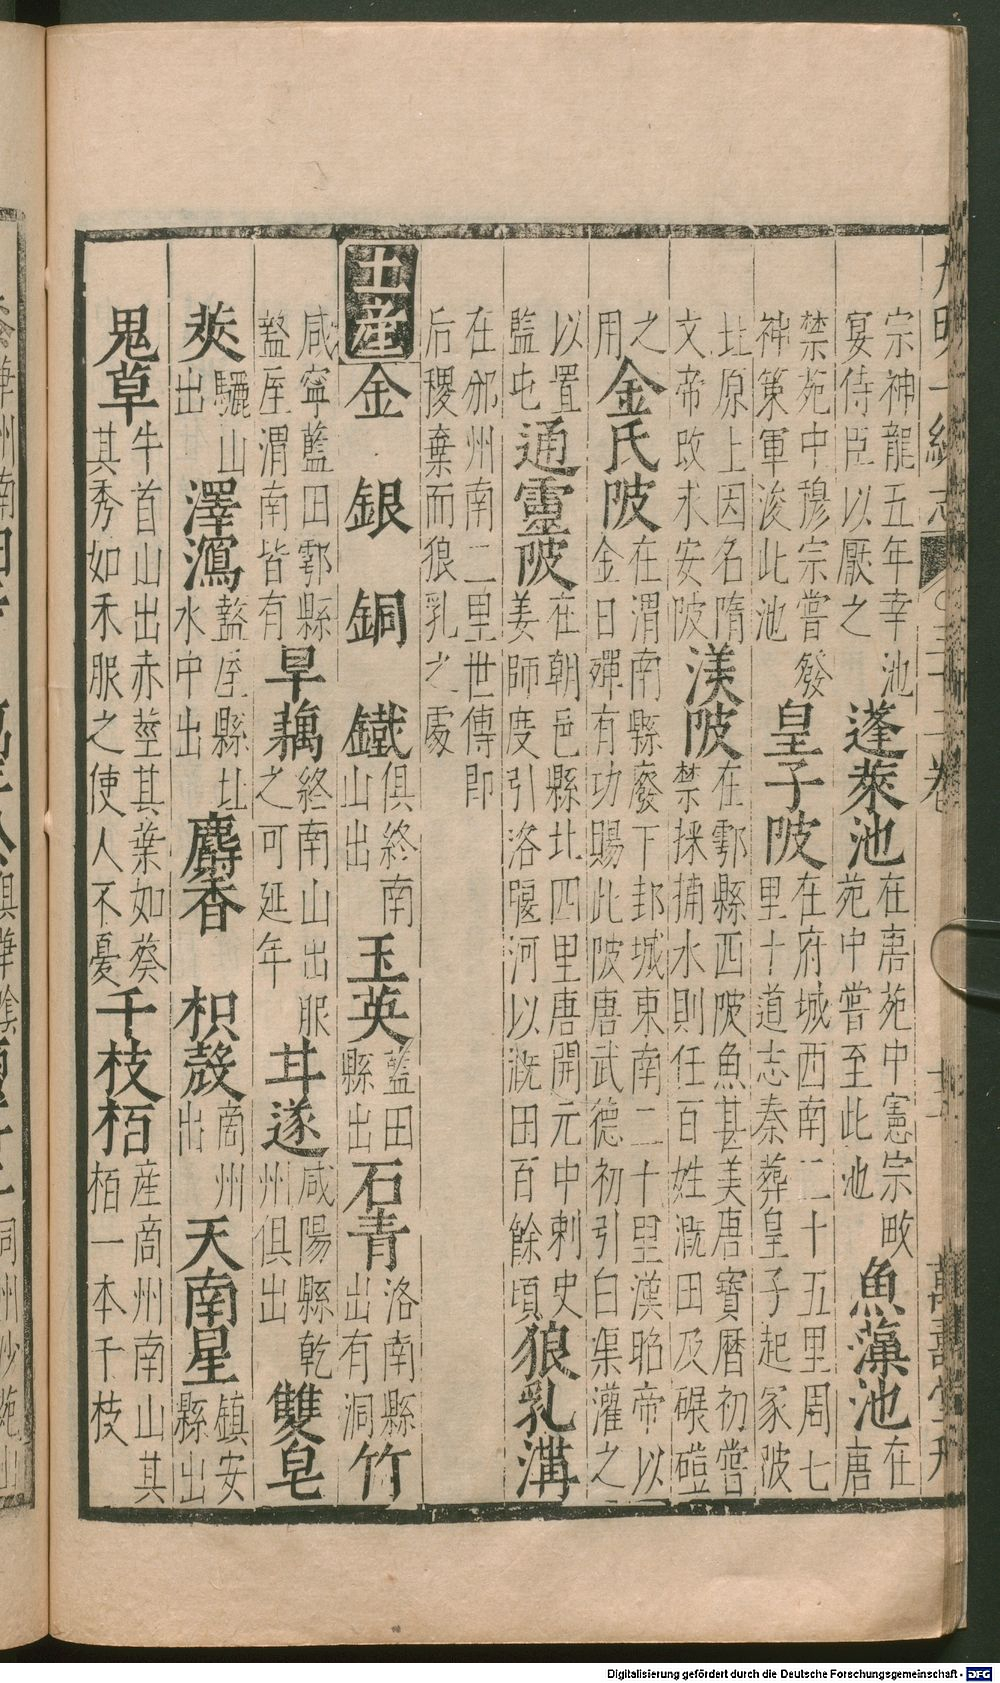 大明一統志 三十二卷 十五 萬壽堂刊
宗神龍五年幸池
宴侍臣以厭之
蓬萊池
在唐苑中憲宗畋
苑中嘗至此池
魚藻池
在
唐
禁苑中穆宗嘗發
神策軍浚此池
皇子陂
在府城西南二十五里周七
里十道志秦葬皇子起冢陂
北原上因名隋
文帝改永安陂
渼陂
在鄠縣西陂魚甚美唐寶曆初嘗
禁採捕水則任百姓溉田及碾磑
之
用
金氏陂
在渭南縣廢下邽城東南二十里漢昭帝以
金日磾有功賜此陂唐武德初引白渠灌之
以置
監屯
通靈陂
在朝邑縣北四里唐開元中刺史
姜師度引洛堰河以溉田百餘頃
狼乳溝
在邠州南二里世傳即
后稷棄而狼乳之處
土産
金 銀 銅 鐵
俱終南
山出
玉英
藍田
縣出
石青
洛南縣
出有洞
竹
咸寧藍田鄠縣
盩厔渭南皆有
旱藕
終南山出服
之可延年
茸遂
咸陽縣乾
州俱出
雙皂
莢
驪山
出
澤瀉
盩厔縣北
水中出
麝香 枳殼
商州
出
天南星
鎮安
縣出
鬼草
牛首山出赤莖其葉如葵
其秀如禾服之使人不憂
千枝栢
産商州南山其
栢一本千枝
Digitalisierung gefördert durch die Deutsche Forschungsgemeinschaft - DFG